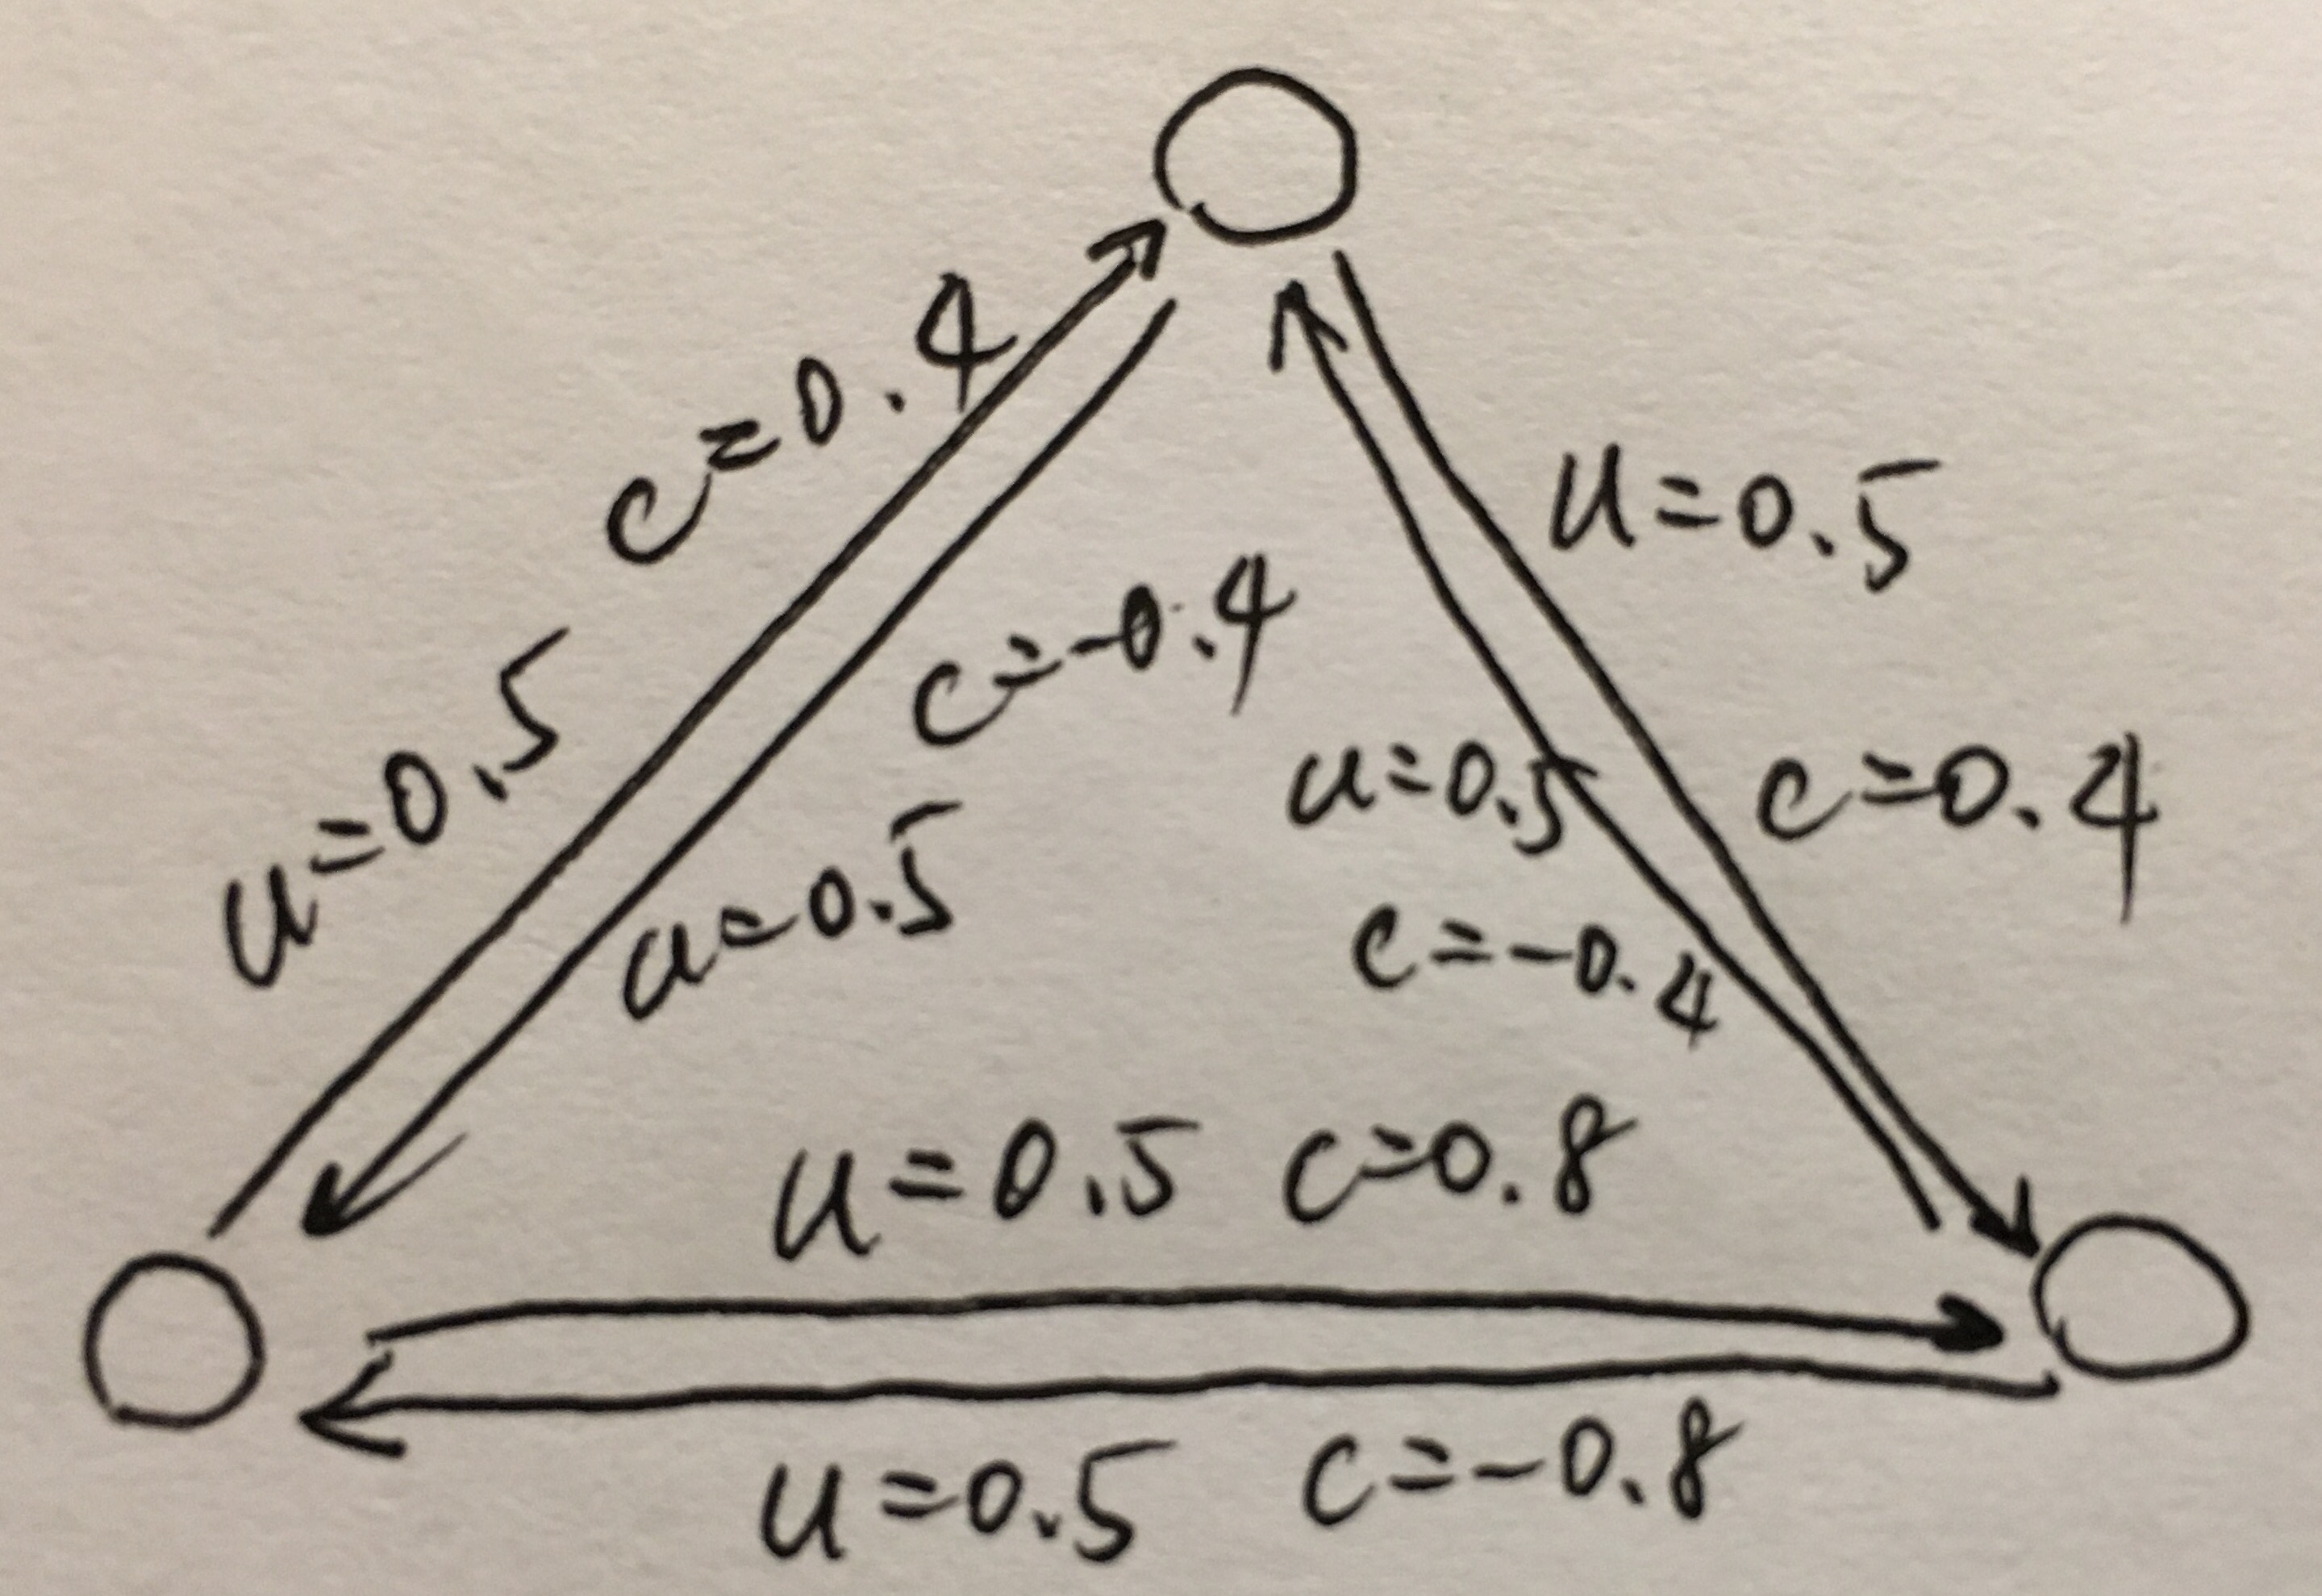 c=0.4
u=0.5
c=-0.4
u=0.5
u=0.5
c=0.4
u=0.5
c=-0.4
u=0.5 c=0.8
u=0.5 c=-0.8